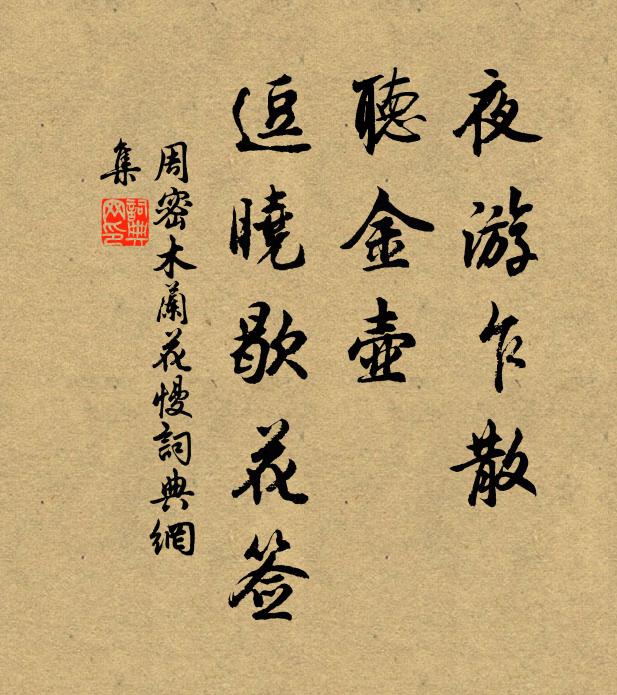 夜游乍散
聽金壺
逗曉歇花签
周密木蘭花慢詞典網
集
詞典
网印